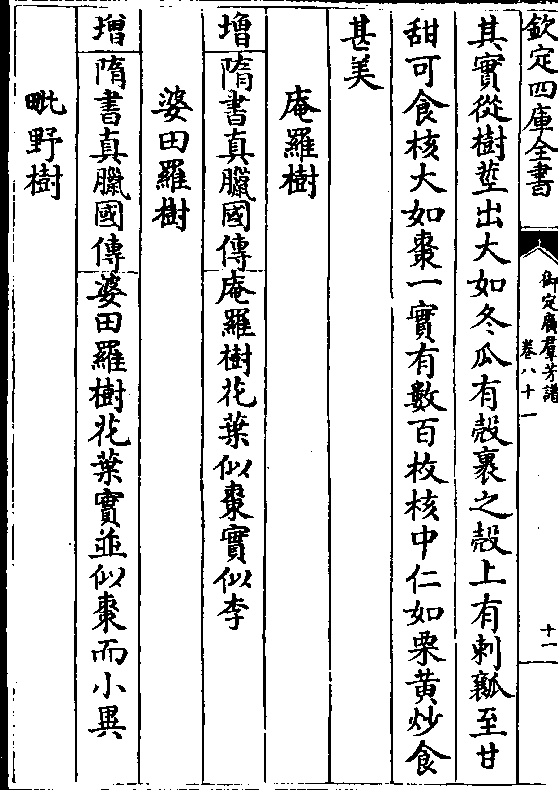 欽定四庫全書
御定廣羣芳譜
卷八十一
十一
其實從樹莖出大如冬瓜有殼裹之殼上有刺瓤至甘
甜可食核大如棗一實有數百枚核中仁如栗黄炒食
甚美
庵羅樹
增隋書真臘國傳庵羅樹花葉似棗實似李
婆田羅樹
增隋書真臘國傳婆田羅樹花葉實並似棗而小異
毗野樹